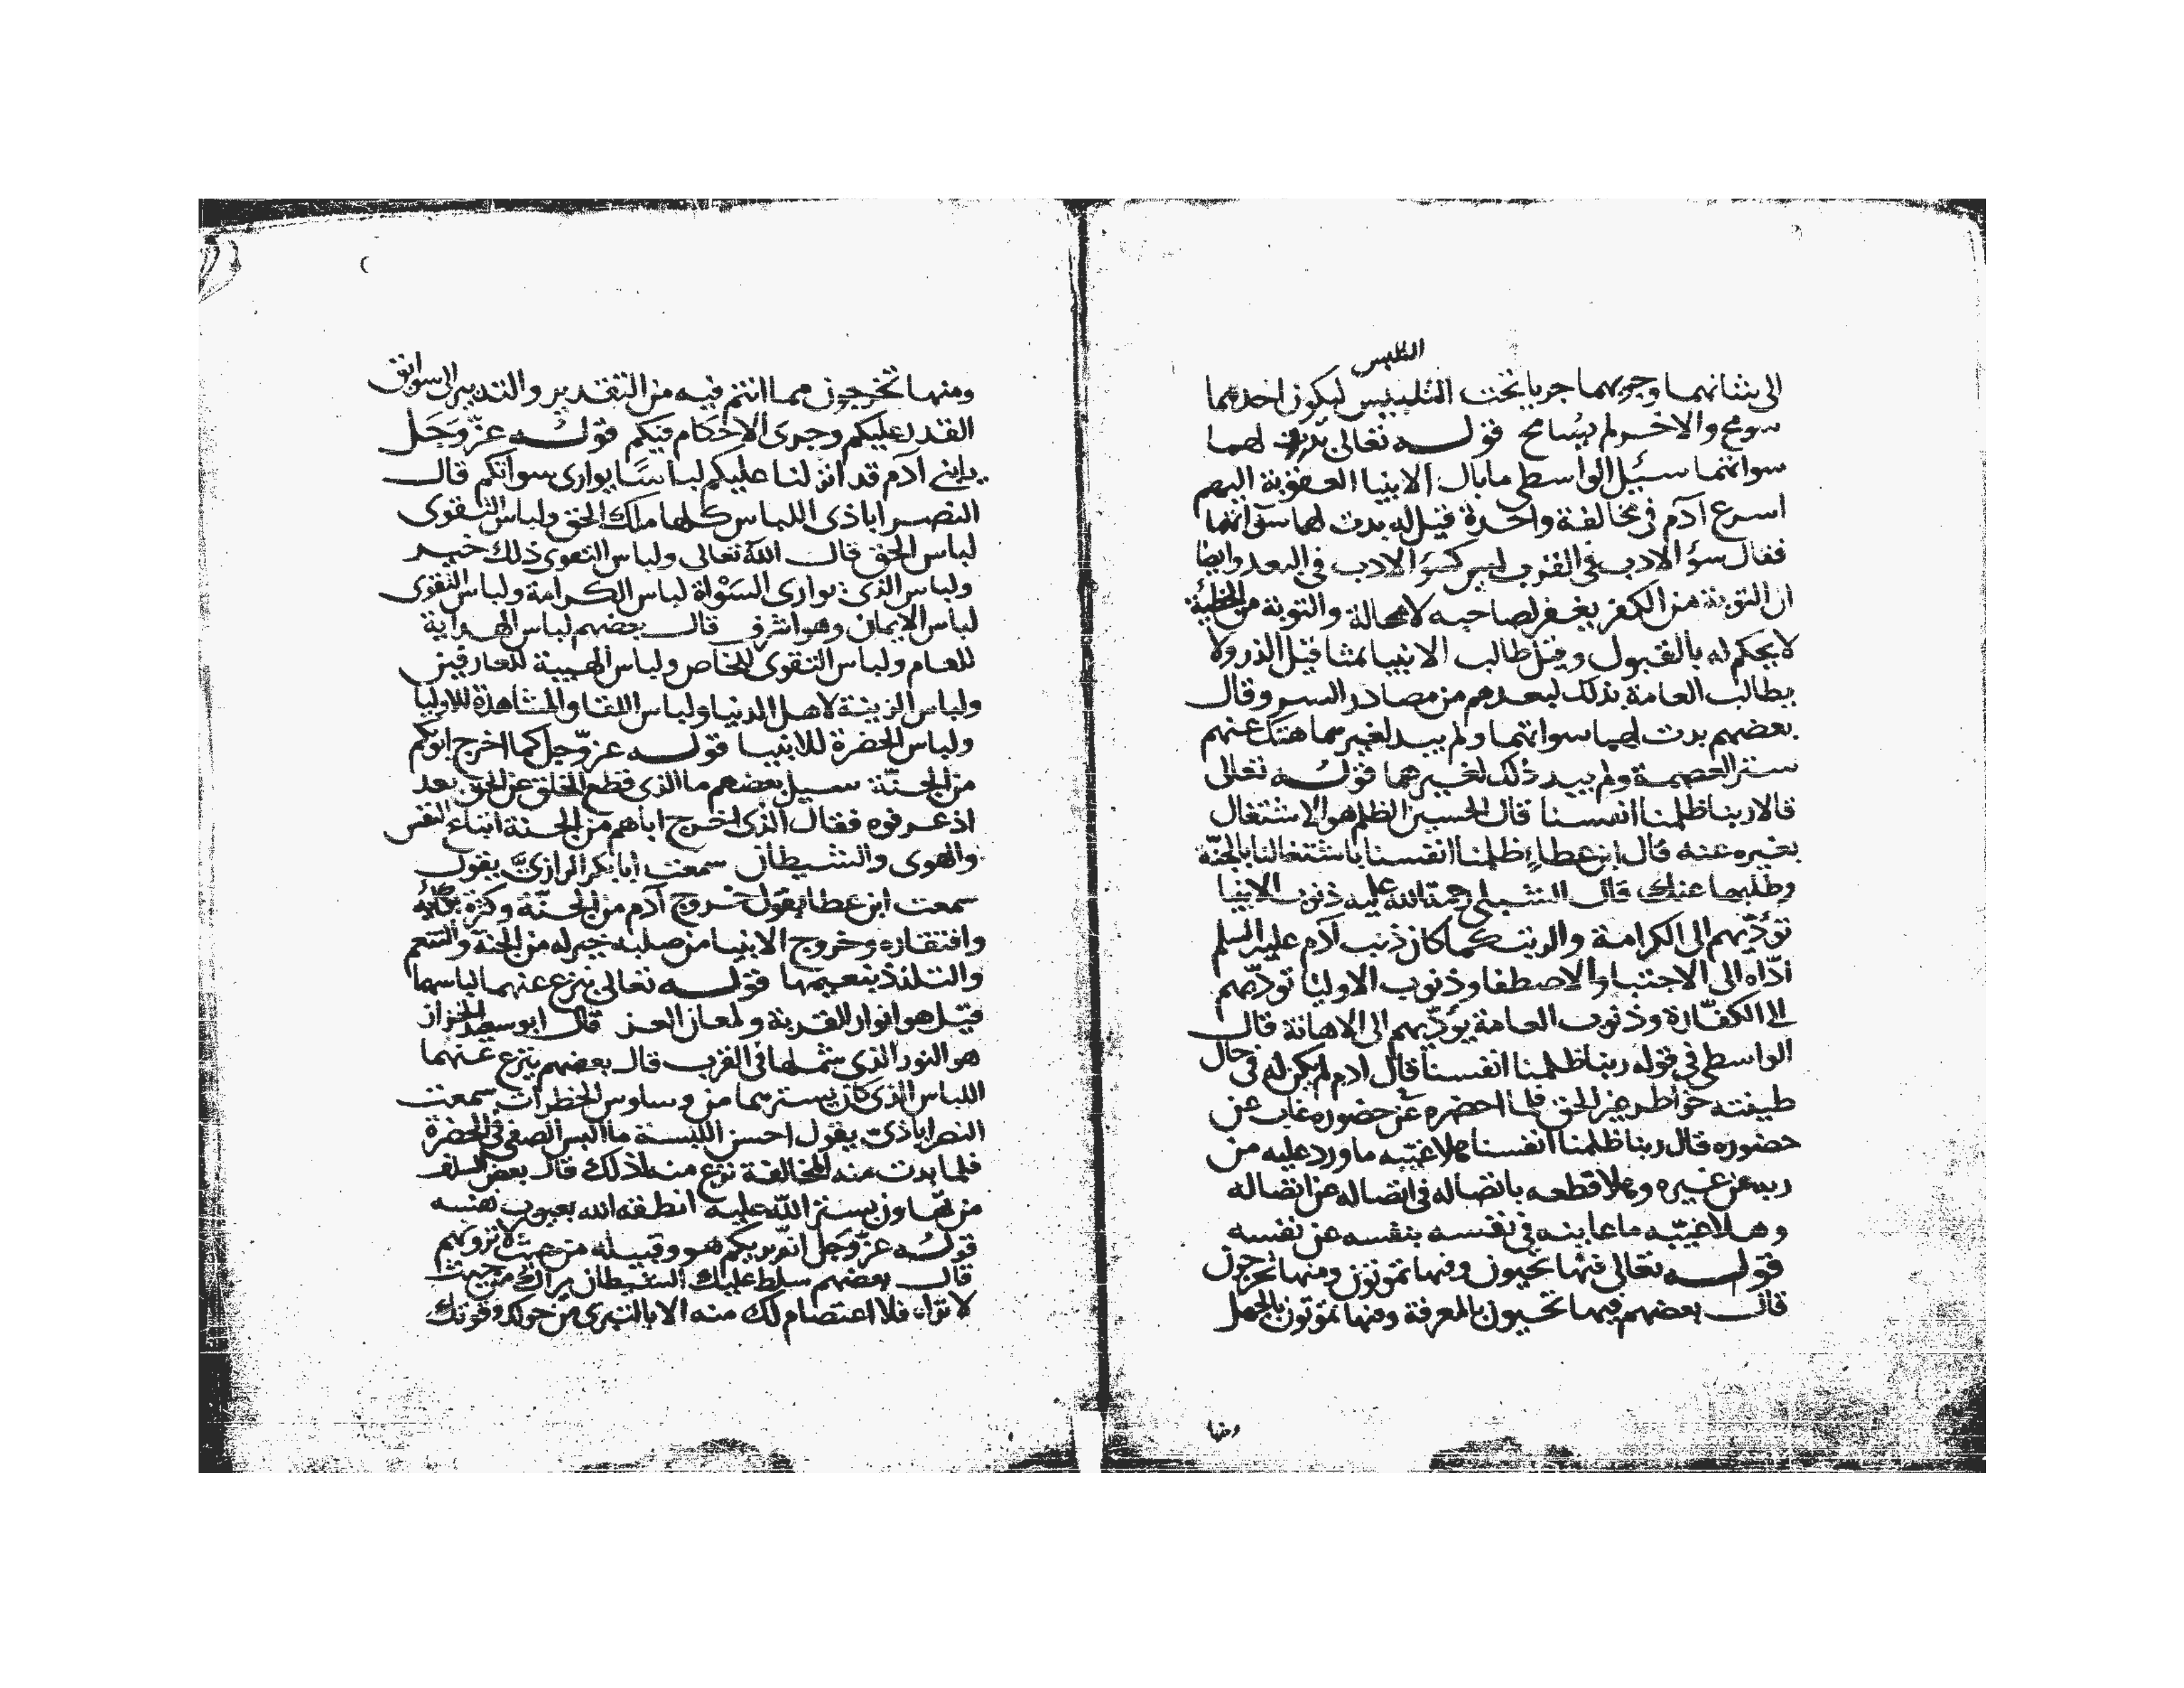 التلبس
الى بشانهما وجريهما جريا تحت التلبيس ليكون احدهما
سومح والاخر لم يسامح قوله تعالى بدت لهما
سواتهما سئيل الواسطى ما بال الانبيا العقوبة اليهم
اسرع آدم فى مخالفة واحدة قيل له بدت لهما سواتهما
فقال سوُ الادب فى القرب ليس كسوَ الادب فى البعد وايضا
ان التوبة من الكفر يغفر لصاحبه لا محالة والتوبة من الخطيئة
لا يحكم له بالقبول وقيل طالب الانبيا بمثاقيل الذر ولا
يطالب العامة بذلك لبعدهم من مصادر السر وقال
بعضهم بدت لهما سواتهما ولم يبد لغيرهما هتك عنهم
ستر العصمة ولم يبد ذلك لغيرهما قوله تعالى
قالا ربنا ظلمنا انفسنا قال الحسين الظلم هو الاشتغال
بغيره عنه قال ابن عطاءٍ ظلمنا انفسنا باشتغالنا بالجنّة
وطلبها عنك قال الشبلى رحمة الله عليه ذنوب الانبيا
تؤدّيهم الى الكرامة والرتب كما كان ذنب آدم عليه السلم
ادّاه الى الاجتبا والاصطفا وذنوب الاوليا تودّيهم
الى الكفّارة وذنوب العامة يؤدّيهم الى الاهانة قال
الواسطى فى قوله ربنا ظلمنا انفسنا قال ادم لم يكن له فى حال
طينته خواطر غير الحق فلما احضره عن حضوره غاب عن
حضوره قال ربنا ظلمنا انفسنا هلا غيّبه ما ورد عليه من
ربه عن غيره وهلا قطعه باتصاله فى اتصاله عن اتصاله
وهلا غيّبه ما عاينه فى نفسه بنفسه عن نفسه
قوله تعالى فيها تحيون وفيها تموتون ومنها تخرجون
قال بعضهم فيها تحيون بالمعرفة وفيها تموتون بالجهل
ومنها
ومنها تخرجون مما انتم فيه من التقدير والتدبير الى سوابق
القدر عليكم وجرى الاحكام فيكم قوله عزّ وَجَل
يابنى آدم قد انزلنا عليكم لباسًا يوارى سواتكم قال
النصراباذى اللباس كلها ملك الحق ولباس التقوى
لباس الحق قال اللهُ تعالى ولباس التقوى ذلك خير
ولباس الذى يوارى السَوْاة لباس الكرامة ولباس التقوى
لباس الايمان وهو اشرف قال بعضهم لباس الهداية
للعام ولباس التقوى للخاص ولباس الهيبة للعارفين
ولباس الزينة لاهل الدنيا ولباس اللقا والمشاهدة للاوليا
ولباس الحضرة للانبيا قوله عزّ وجل كما اخرج ابويكم
من الجنّة سيل بعضهم ما الذى قطع الخلق عن الحق بعد
اذ عرفوه فقال الذى اخرج اباهم من الجنة اتباع النفس
والهوى والشيطان سمعت ابا بكر الرازىَّ يقول
سمعت ابن عطا يقول خروج آدم من الجنّة وكثرة بكائه
وافتقاره وخروج الانبيا من صلبه خير له من الجنة والتنعم
والتلذذ بنعيمها قوله تعالى ينزع عنهما لباسهما
قيل هو انوار القربة ولمعان العز قال ابو سعيد الخراز
هو النور الذى شملهما فى القرب قال بعضهم ينزع عنهما
اللباس الذى كان يسترهما من وساوس الخطرات سمعت
النصراباذىّ يقول احسن اللبسة ما البس الصفى فى الحضرة
فلما بدت منه المخالفة نزع منه لذلك قال بعض السلف
من تهاون بستر الله عليه انطقه الله بعيوب نفسه
قوله عزّ وَجَل انه يريكم هو وقبيله من حيث لا ترونهم
قال بعضهم سلط عليك الشيطان يراك من حيث
لا تراه فلا اعتصام لك منه الا بالتبرى من حولك وقوتك